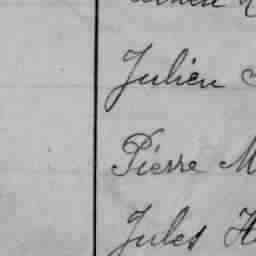 Julien
Pierre M
Jules H